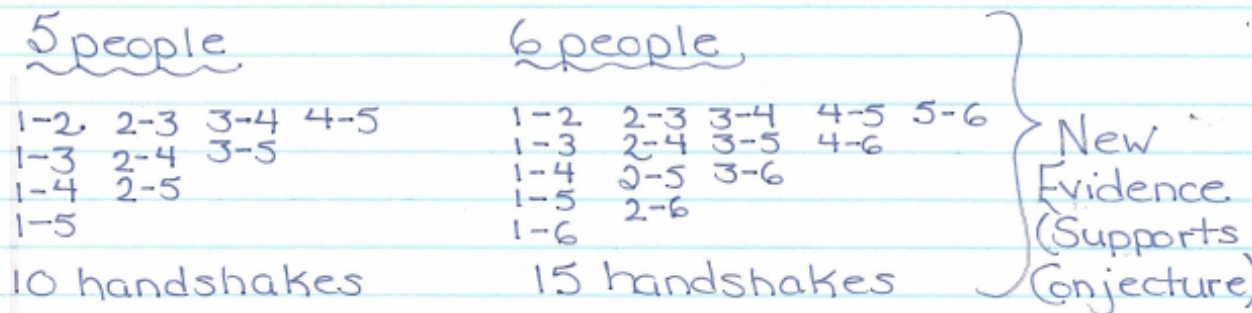 5 people
1-2 2-3 3-4 4-5
1-3 2-4 3-5
1-4 2-5
1-5
10 handshakes
6 people
1-2 2-3 3-4 4-5 5-6
1-3 2-4 3-5 4-6
1-4 2-5 3-6
1-5 2-6
1-6
15 handshakes
New
Evidence
(Supports
Conjecture)